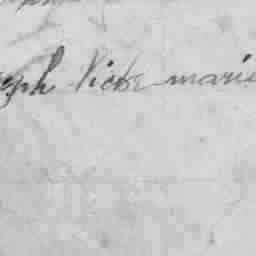 eph Victor marie